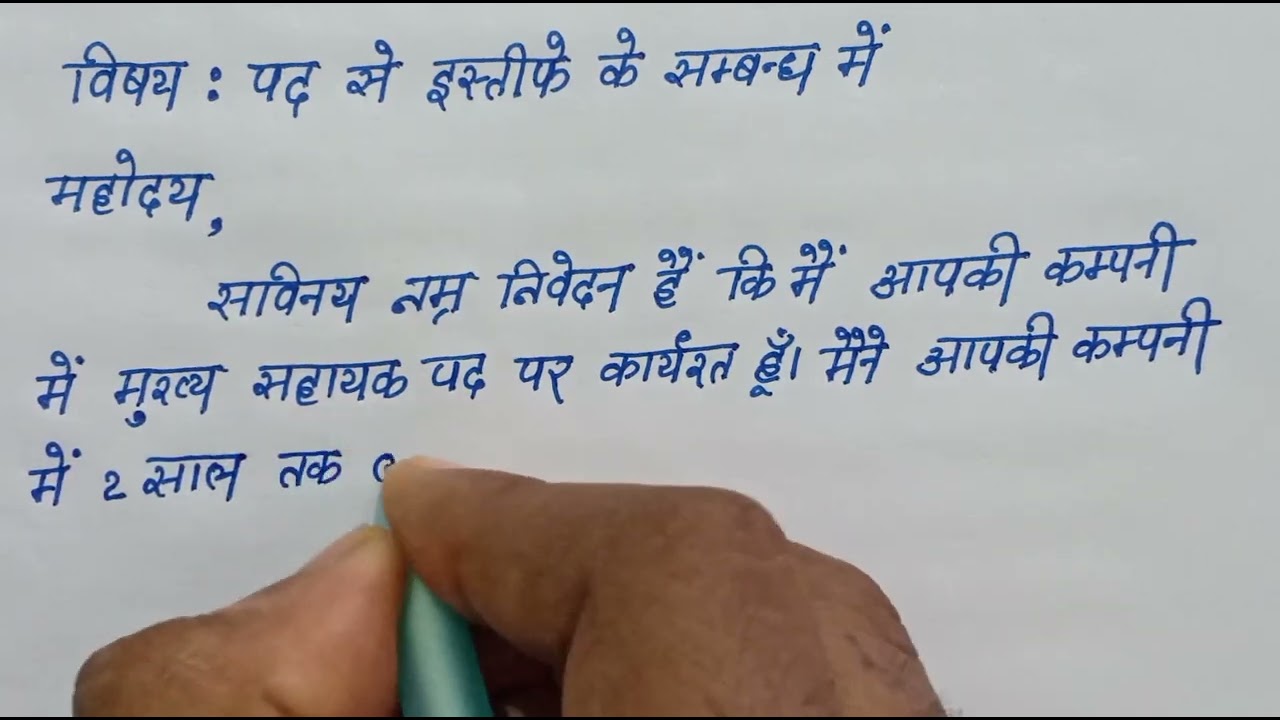 विषय : पद से इस्तीफे के सम्बन्ध में
महोदय,
सविनय नम्र निवेदन हैं कि मैं आपकी कम्पनी
में मुख्य सहायक पद पर कार्यरत हूँ। मैंने आपकी कम्पनी
में 2 साल तक